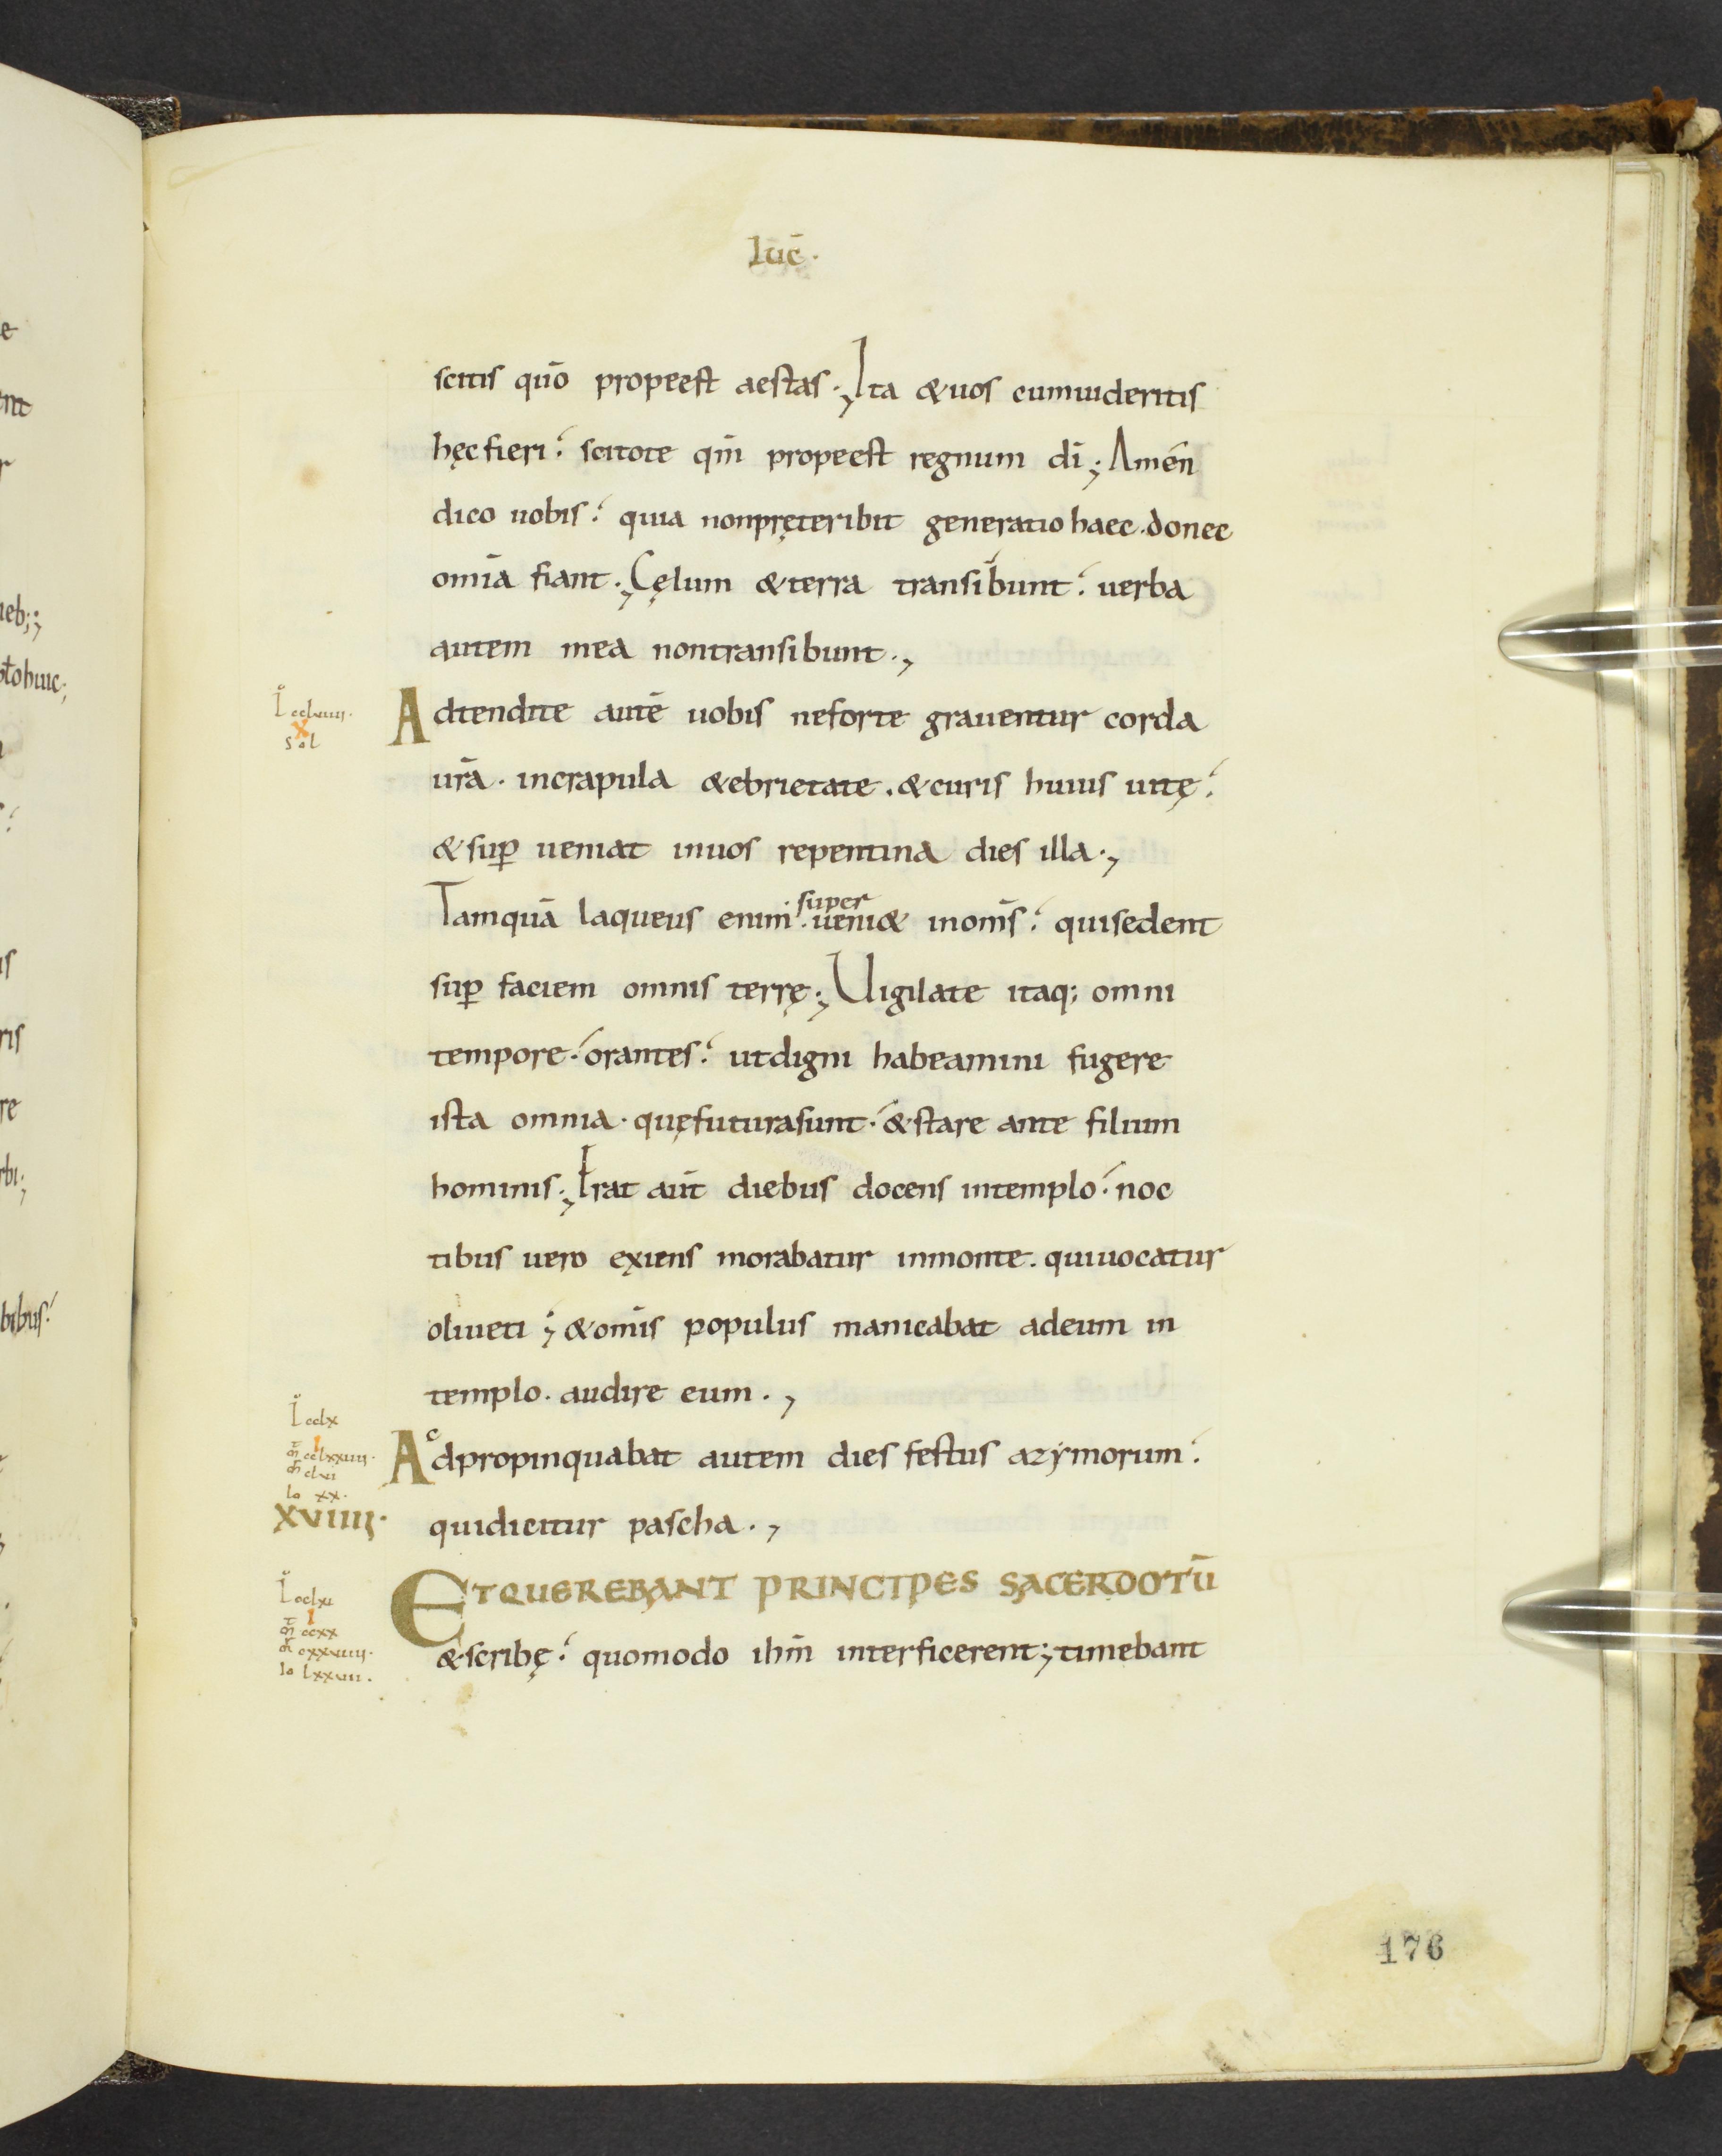 lūc̄.
scitis qūo propeest aestas., Ita & uos cumuideritis
hęc fieri. scitote qm̄ propeest regnum dī; Amen
dico uobis. quia nonpręteribit generatio haec. donec
om̄ia fiant., Cęlum & terra transibunt. uerba
autem mea nontransibunt.,
L cclviiii.
X
sol
Adtendite autē uobis neforte grauentur corda
ur̄a. incrapula & ebrietate. & curis huius uitę.
& suꝑ ueniat inuos repentina dies illa.,
super
Tamquā laqueus enim. ueni& inom̄s. quisedent
suꝑ faciem omnis terrę., Uigilate itaq; omni
tempore. orantes. utdigni habeamini fugere
ista omnia. quęfuturasunt. & stare ante filium
hominis., Erat aūt diebus docens intemplo. noc
tibus uero exiens morabatur inmonte. quiuocatur
oliueti; & om̄is populus manicabat adeum in
templo. audire eum.,
L cclx
I
m̄ cclxxiiii.
m̄ clvi
io xx.
XVIIII.
c
Adpropinquabat autem dies festus azymorum.
quidicitur pascha.,
L cclxi
I
m̄ ccxx
m̄ cxxviiii.
io lxxvii.
ETQUEREBANT PRINCIPES SACERDOTŪ
& scribę. quomodo ihm̄ interficerent; timebant
176